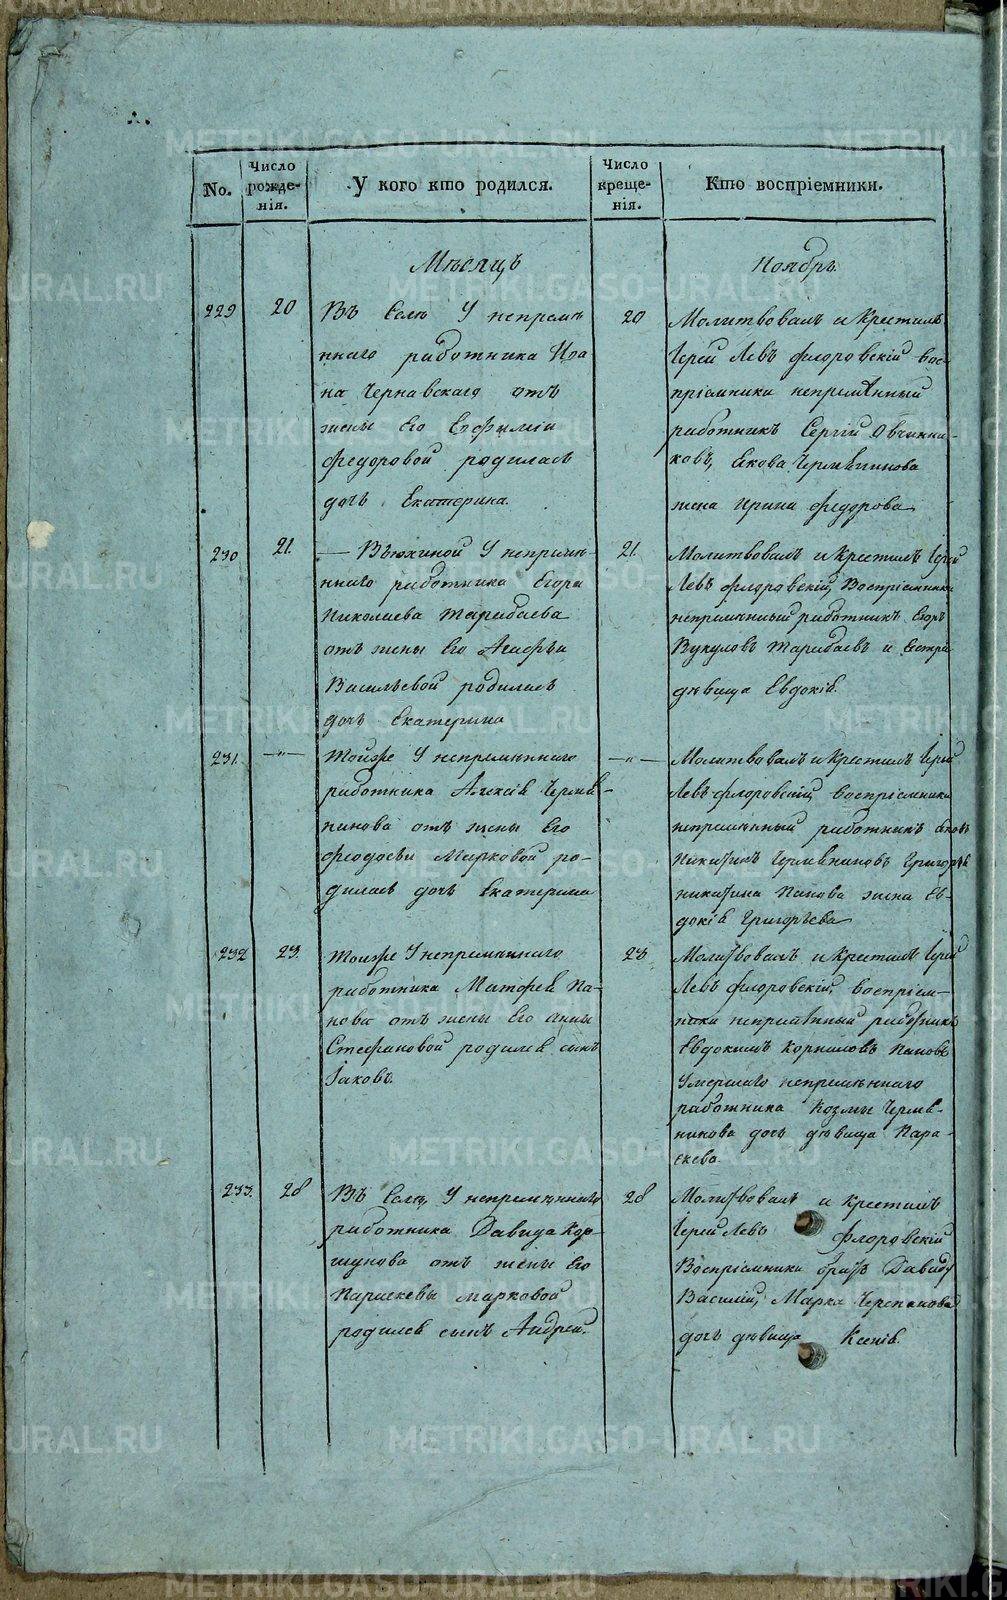 No.
Число рожде-нія.
У кого кто родился.
Число креще-нія.
Кто воспріемники.
Мѣсяцъ
Ноябрь.
229
20
Въ Селѣ У непремѣ
ннаго работника Иоа
на Чернавскаго отъ
жены Его Евфиміи
Федоровой родилась
дочь Екатерина.
20
Молитвовалъ и Крестилъ
Іерей Левъ Флоровскій вос-
пріемники непремѣнный
работникъ Сергій Овчинни-
ковъ, Якова
жена Ирина Федорова
230
21.
— Вьюхиной У непремѣ-
ннаго работника Егора
Николаева Тарабаева
отъ жены Его Агафьи
Васильевой родилась
дочь Екатерина
21.
Молитвовалъ и Крестилъ Іерей
Левъ Флоровскій, Воспріемники
непремѣнный работникъ Егоръ
Вукуловъ Тарабаевъ и Сестра
дѣвица Евдокія.
231.
—"—
Тойже У непремѣннаго
работника Алексѣя
отъ жены Его
Феодосьи Марковой ро-
дилась дочь Екатерина
—"—
Молитвовалъ и Крестилъ Іерей
Левъ Флоровскій, воспріемники
непремѣнный работникъ Яковъ
Никитинъ Григорья
Никитина Панова жена Ев-
докія Григорьева
232
23.
Тойже У непремѣннаго
работника Матфея Па-
нова отъ жены Его Анны
Стефановой родился сынъ
Іаковъ.
23
Молитвовалъ и Крестилъ Іерей
Левъ Флоровскій, воспріем-
ники непремѣнный работникъ
Евдокимъ Корниловъ Пановъ
Умершаго непремѣннаго
работника Козмы
дочь дѣвица Пара-
скева.
233.
28
Въ Селѣ У непремѣннаго
работника Давида Кор-
шунова отъ жены Его
Параскевы Марковой
родился сынъ Андрей.
28
Молитвовалъ и Крестилъ
Іерей Левъ Флоровскій
Воспріемники братъ Давиду
Василій, Марка Черепанова
дочь дѣвица Ксенія.
METRIKI.GASO-URAL.RU